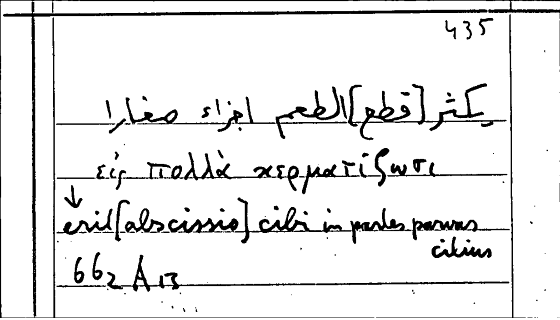 435
يكثر [قطع] الطعم اجزاء صغارا
εἰς πολλὰ κερματίζωσι
↓
erit [abscissio] cibi in partes parvas
citius
662 A 13